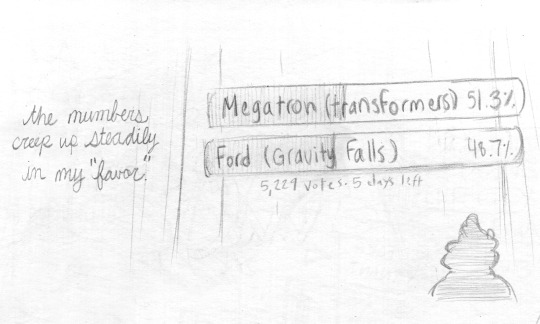 the numbers
creep up steadily
in my "favor."
Megatron (transformers) 51.3%
Ford (Gravity Falls) 48.7%
5,229 votes. 5 days left